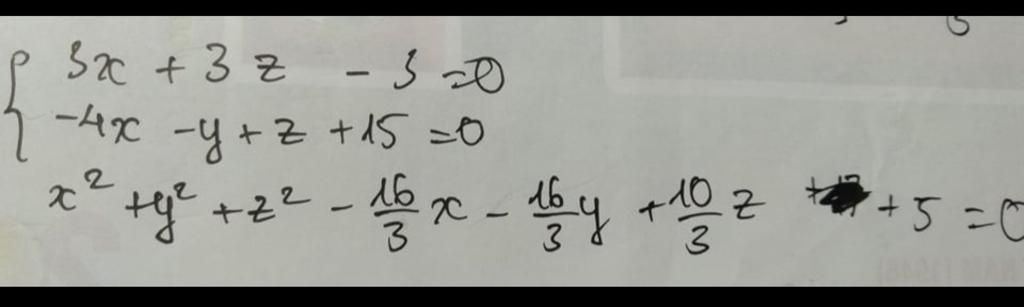 3x + 3z - 3 = 0
-4x - y + z + 15 = 0
x² + y² + z² - 16/3 x - 16/3 y + 10/3 z + 5 = 0